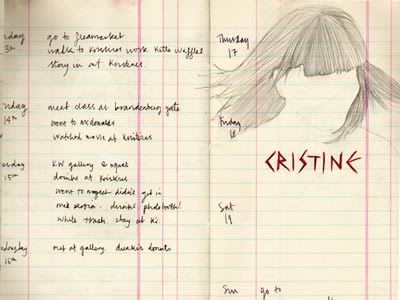 nday
13th
go to fleamarket
walk to Kristines work. Kitte Waffles
stay in at Kristines.
esday
14th
meet class at brandenburg gate
went to mcdonalds
watched movie at Kristines
esday
15th
KW gallery & squat
drinks at Kristines
went to didnt get in
met drinks photobooth!
white trash. stay at Ki.
ednesday
16th
met at gallery.
Thursday
17
Friday
18
CRISTINE
Sat
19
Sun go to